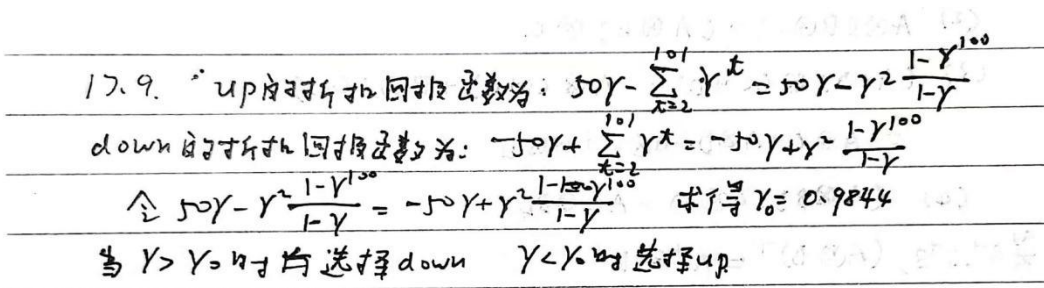 17.9. up的折扣回报函数为: 50γ - \sum_{t=2}^{101} γ^t = 50γ - γ^2 \frac{1-γ^{100}}{1-γ}
down的折扣回报函数为: -50γ + \sum_{t=2}^{101} γ^t = -50γ + γ^2 \frac{1-γ^{100}}{1-γ}
令 50γ - γ^2 \frac{1-γ^{100}}{1-γ} = -50γ + γ^2 \frac{1-γ^{100}}{1-γ} 求得 γ_0 = 0.9844
当 γ > γ_0 时 选择 down γ < γ_0 时 选择up.